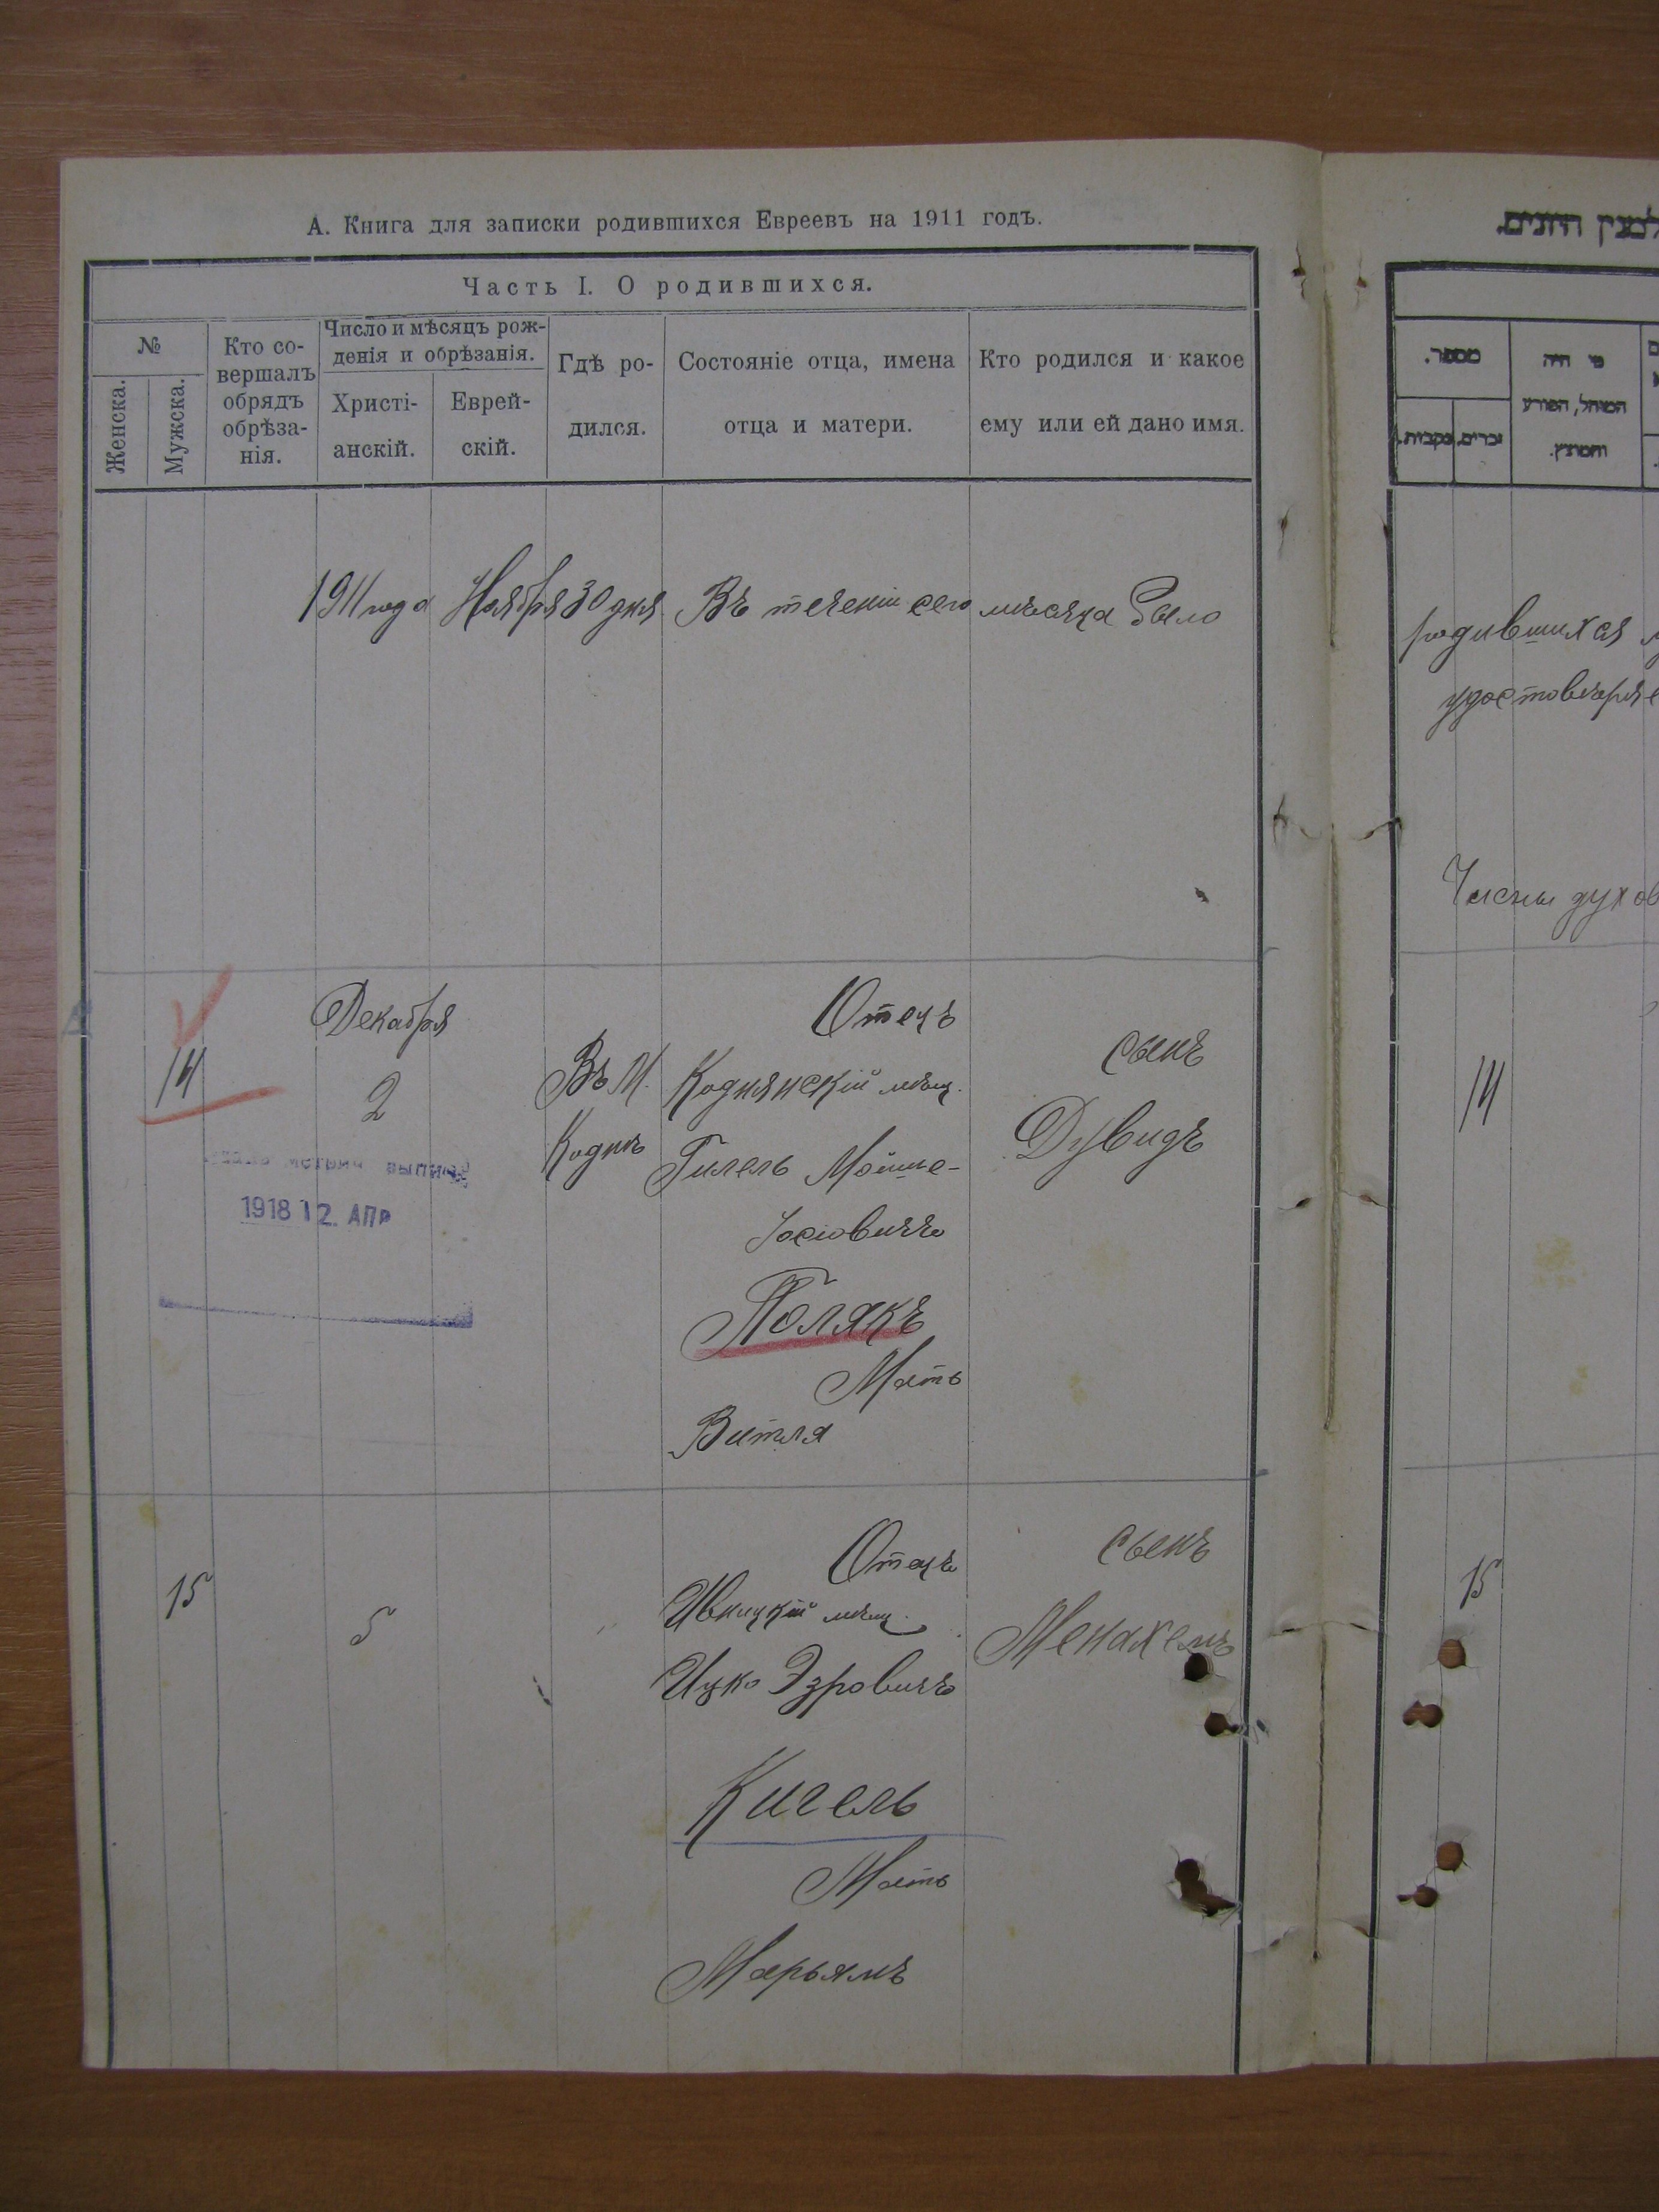 А. Книга для записки родившихся Евреевъ на 1911 годъ.
Часть I. О родившихся.
№
Женска.
Мужска.
Кто со-
вершалъ
обрядъ
обрѣза-
нія.
Число и мѣсяцъ рож-
денія и обрѣзанія.
Христі-
анскій.
Еврей-
скій.
Гдѣ ро-
дился.
Состояніе отца, имена
отца и матери.
Кто родился и какое
ему или ей дано имя.
1911 года Ноября 30 дня Въ теченіи сего мѣсяца было
14
Декабря
2
Въ М.
Коднѣ
Отецъ
Коднянскій мѣщ.
Гилель Мойше-
Іосіовичъ
Полякъ
Мать
Витля
сынъ
Дувидъ
метрич выпись
1918 12. АПР
15
5
Отецъ
Ивницкій мѣщ.
Ицко Эзровичъ
Кигель
Мать
Марьямъ
сынъ
Менахемъ
למנין היונים.
מספר.
זכרים.
נקבות.
מי היה
המוהל, הפורע
והמוצץ.
родившихся
удостовѣряе
Члены духов
14
15